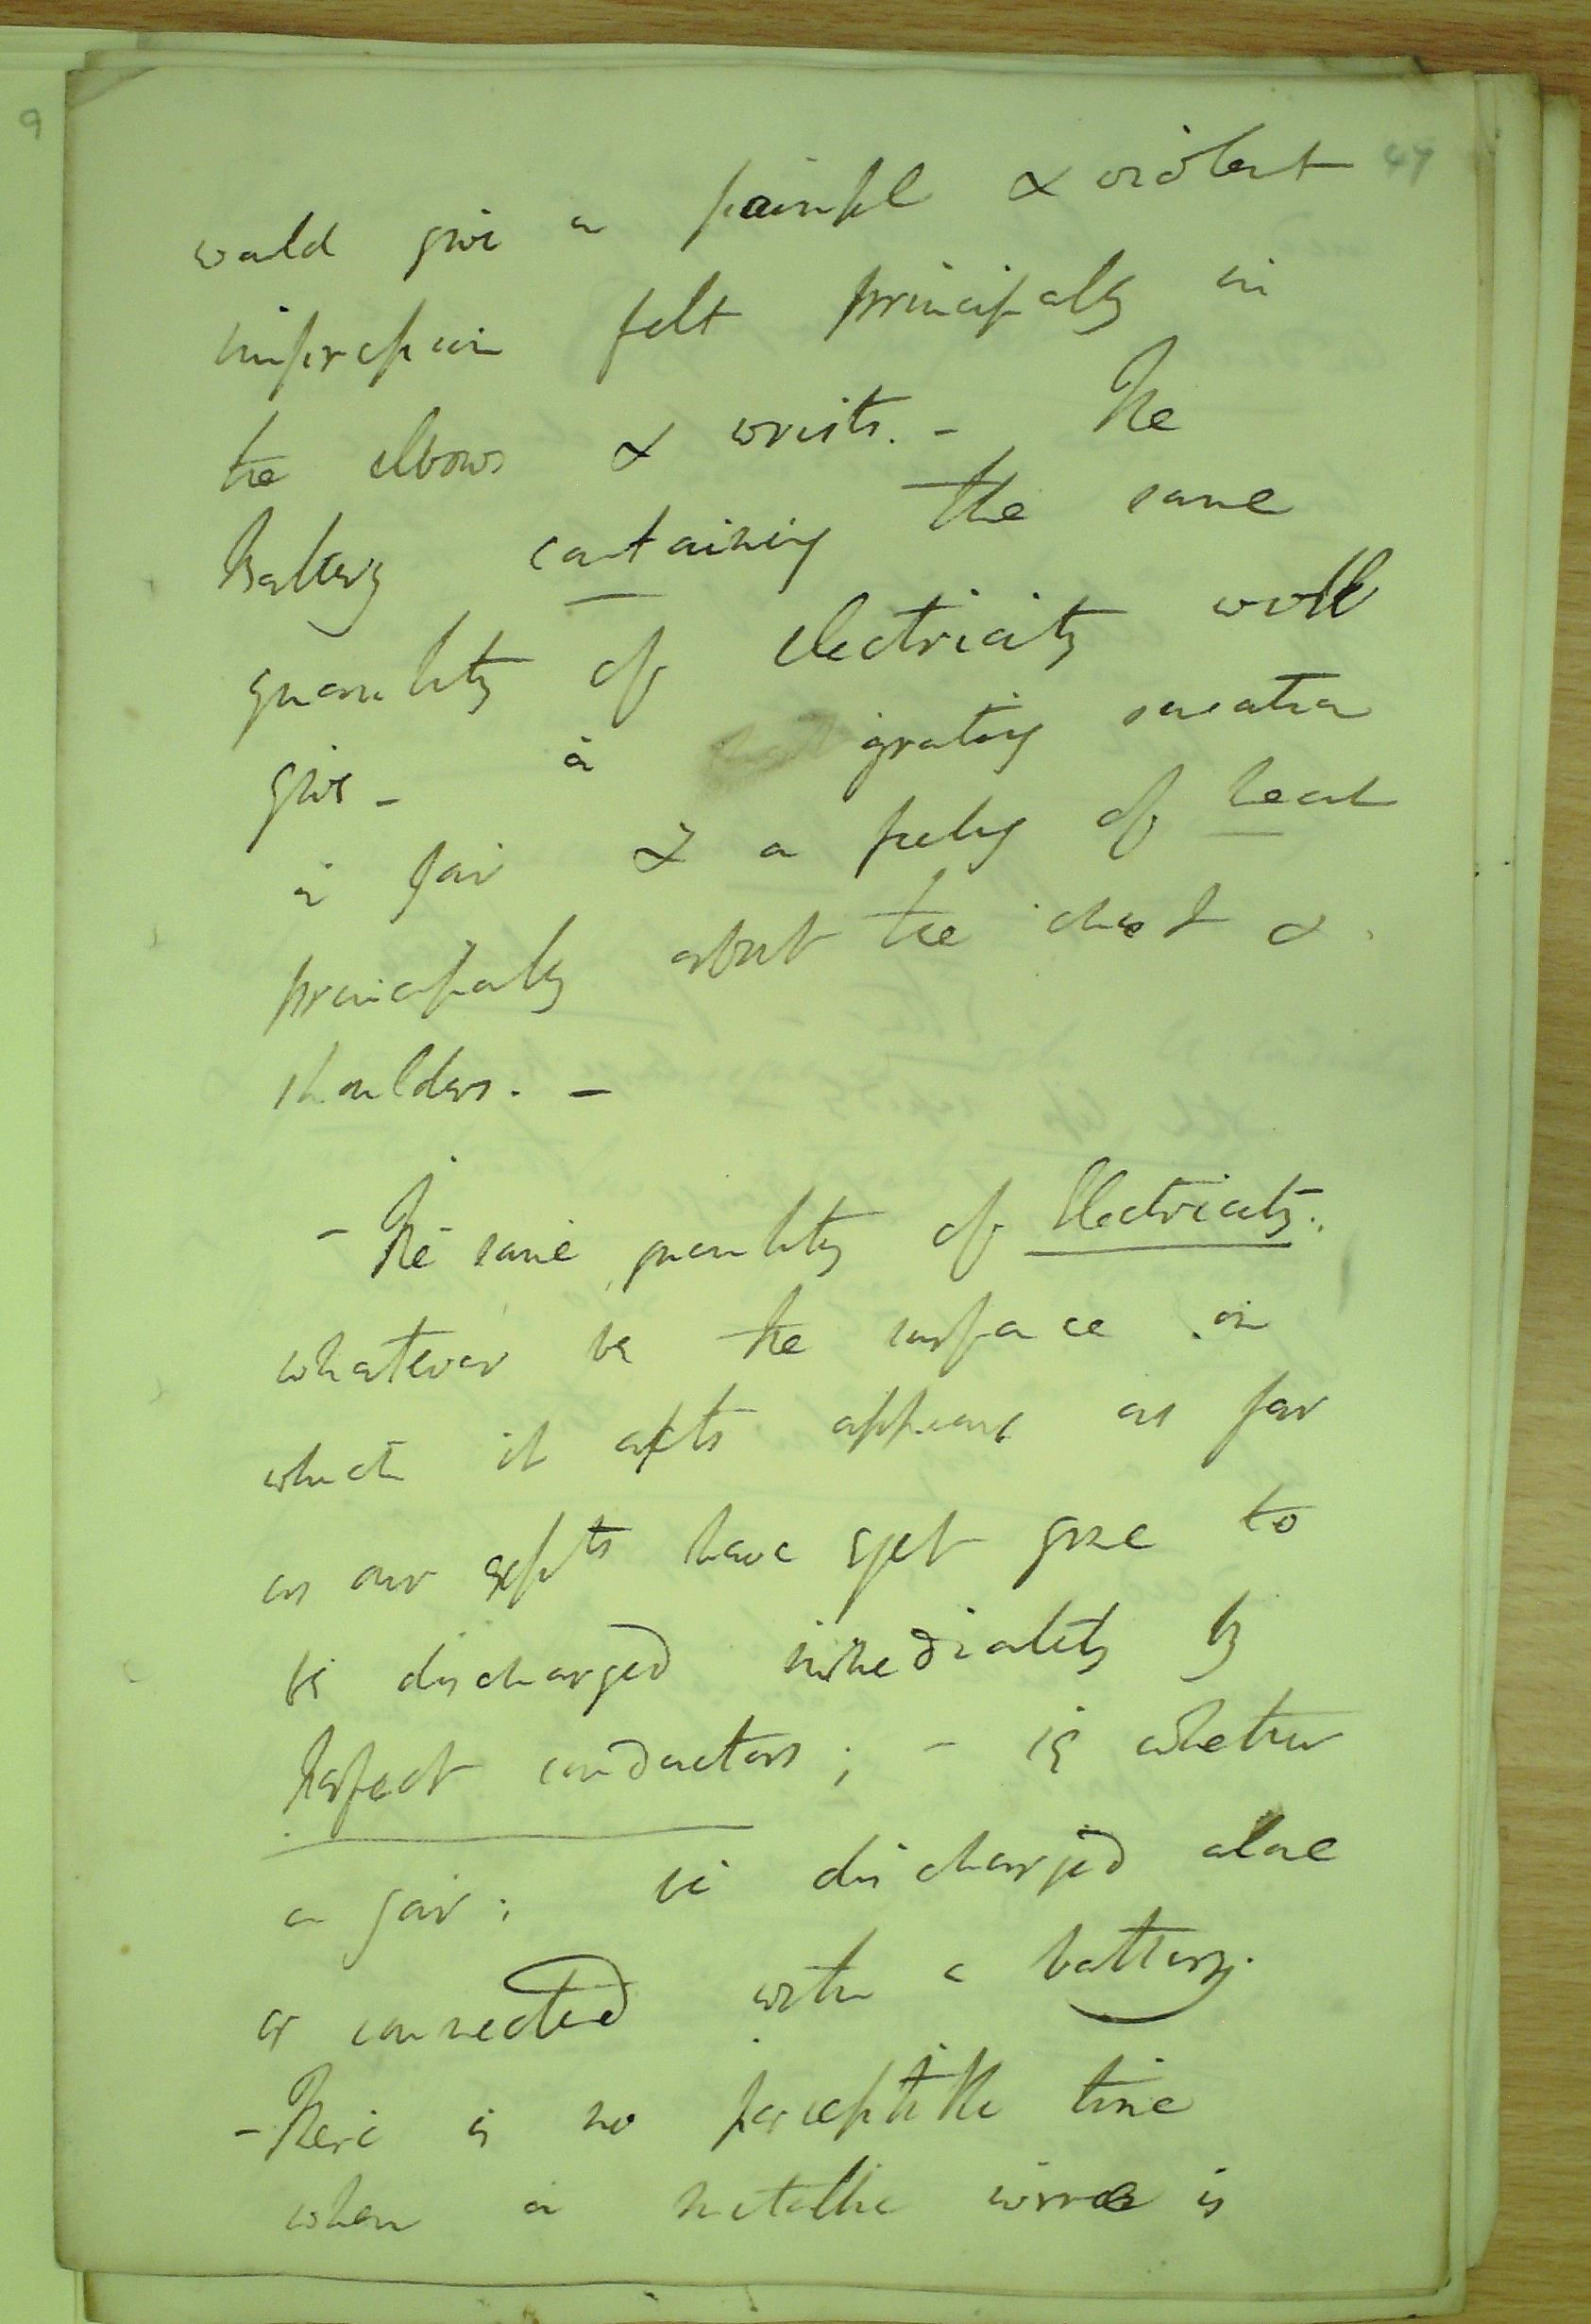 47
would give a painful & violent
impression felt principally in
the elbows & wrists. - The
Battery containing the same
quantity of electricity would
give - a grating sensation
a jar & a feeling of heat
principally about the chest &
shoulders. -
- The same quantity of Electricity.
whatever be the surface on
which it acts appears as far
as our expts have yet gone to
be discharged immediately by
perfect conductors; - ie whether
a jar: be discharged alone
or connected with a battery.
- There is no perceptible time
when a metallic wire is
9